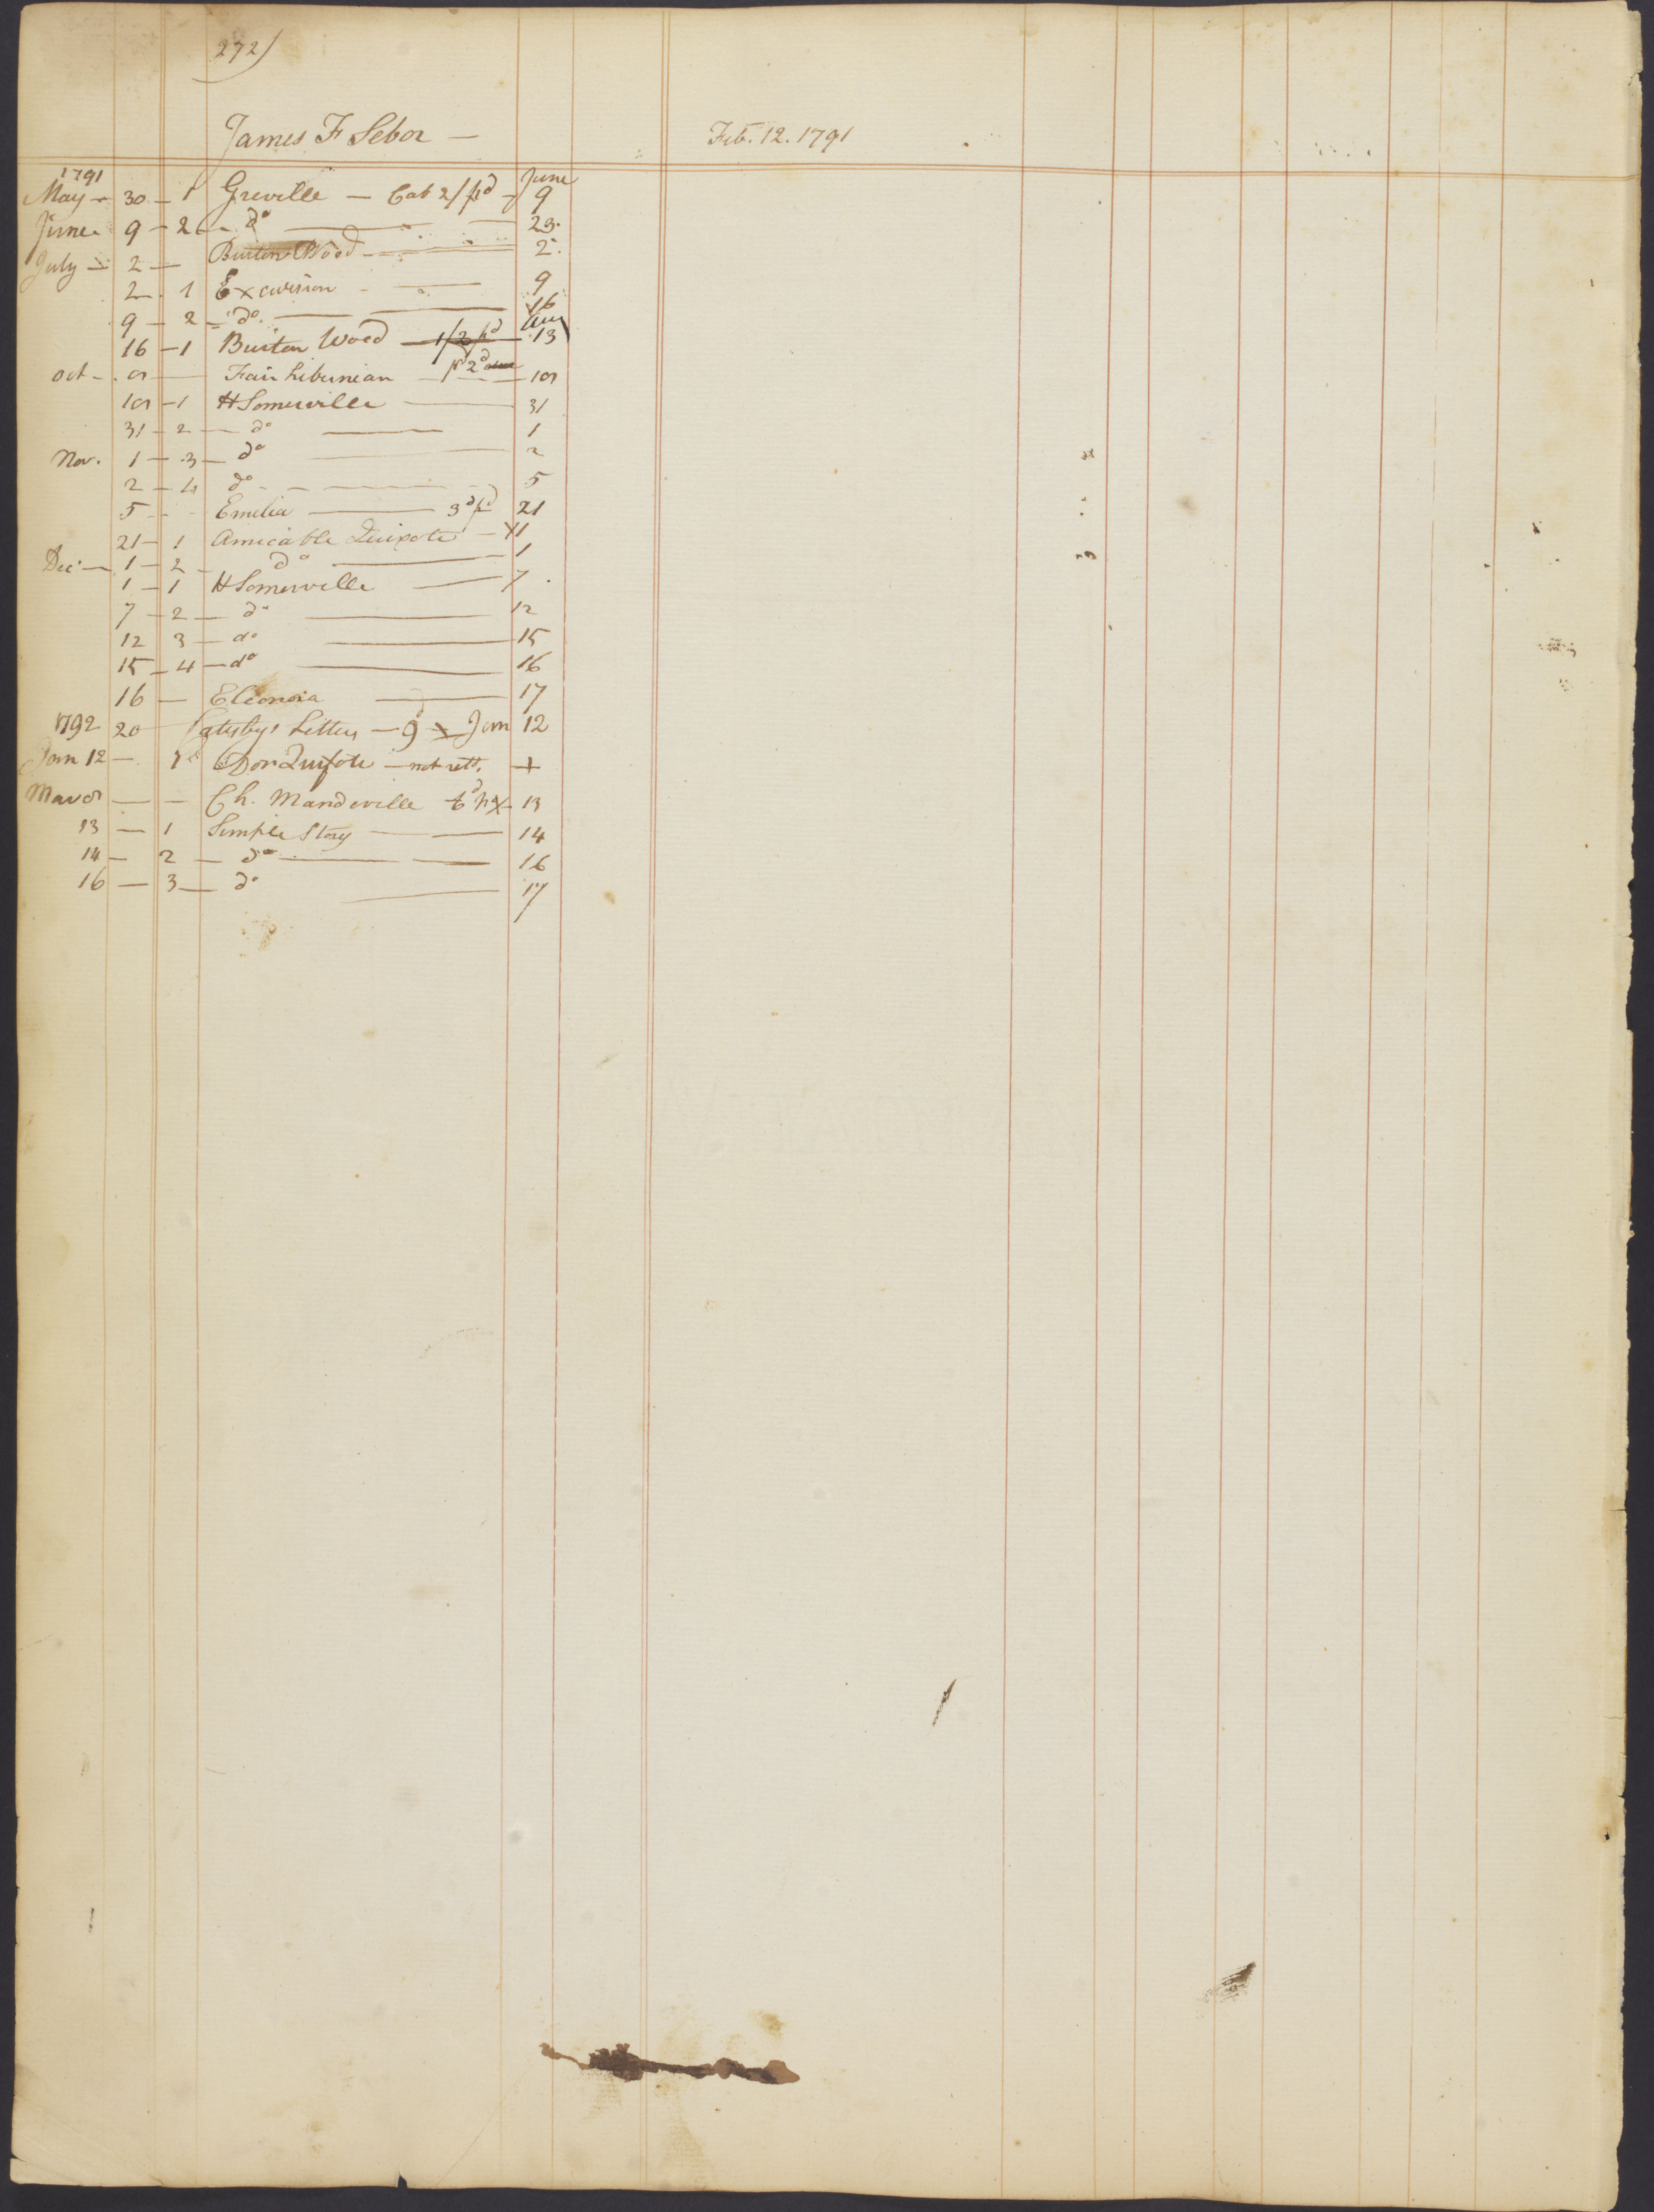 272)
James F Sebor — Feb. 12. 1791
1791 June
May — 30 — 1 Greville — Cat 2/ pd — 9
June 9 — 2 — do — 29
July — 2 — Burton Wood — 2
2 . 1 Excursion — 9
9 — 2 — do. — 16
Aug
16 — 1 Burton Wood — 1/2 pd — 13
Oct — 8 — Fair Hibernian — pd 2d — 18
18 — 1 H Somerville — 31
31 — 2 — do — 1
Nov. 1 — 3 — do — 2
2 — 4 do — 5
5 — Emelia — 3d pd 21
21 — 1 Amicable Quixote — X1
Dec — 1 — 2 — do — 1
1 — 1 H Somerville — 7
7 — 2 — do — 12
12 3 — do — 15
15 — 4 — do — 16
16 — Eleonora — 17
1792 20 — Catesbys Letters — 9d X Jan 12
Jan 12 — 1 Don Quixote — not rett. +
Mar 8 — — Ch. Mandeville 6d X 13
13 — 1 Simple Story — 14
14 — 2 — do — 16
16 — 3 — do — 17